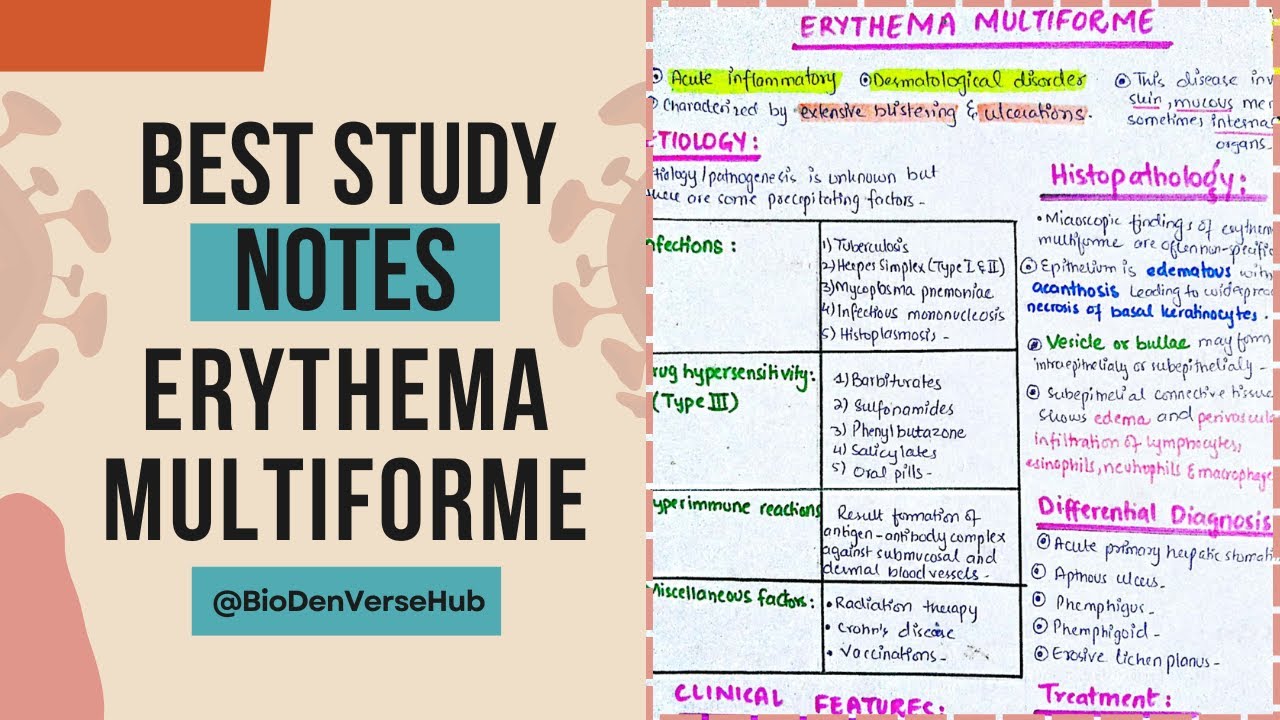 BEST STUDY
NOTES
ERYTHEMA
MULTIFORME
@BioDenVerseHub
ERYTHEMA MULTIFORME
Acute inflammatory
Dermatological disorder
Characterized by extensive blistering & ulcerations.
This disease inv
skin, mucous mem
sometimes interna
organs-
ETIOLOGY:
tiology/pathogenesis is unknown but
are some precipitating factors-
nfections:
1) Tuberculosis
2) Herpes Simplex (Type I & II)
3) Mycoplasma pnemoniae
4) Infectious mononucleosis
5) Histoplasmosis-
rug hypersensitivity:
(Type III)
1) Barbiturates
2) Sulfonamides
3) Phenyl butazone
4) Salicylates
5) Oral pills-
yperimmune reactions
Result formation of
antigen-antibody complex
against submucosal and
dermal blood vessels-
Miscellaneous factors:
• Radiation therapy
• Crohn's disease
• Vaccinations-
CLINICAL FEATURES:
Histopathology:
• Microscopic findings of erythem
multiforme are often non-specific
Epithelium is edematous with
acanthosis leading to widespread
necrosis of basal keratinocytes.
Vesicle or bullae may form
intraepithelialy or subepithelialy-
Subepithelial connective tissue
shows edema and perivascula
infiltration of lymphocytes,
esinophils, neutrophils & macrophage
Differential Diagnosis
Acute primary herpatic stomati
Apthous ulcers-
Phemphigus-
Phemphigoid-
Erosive lichen planus-
Treatment: